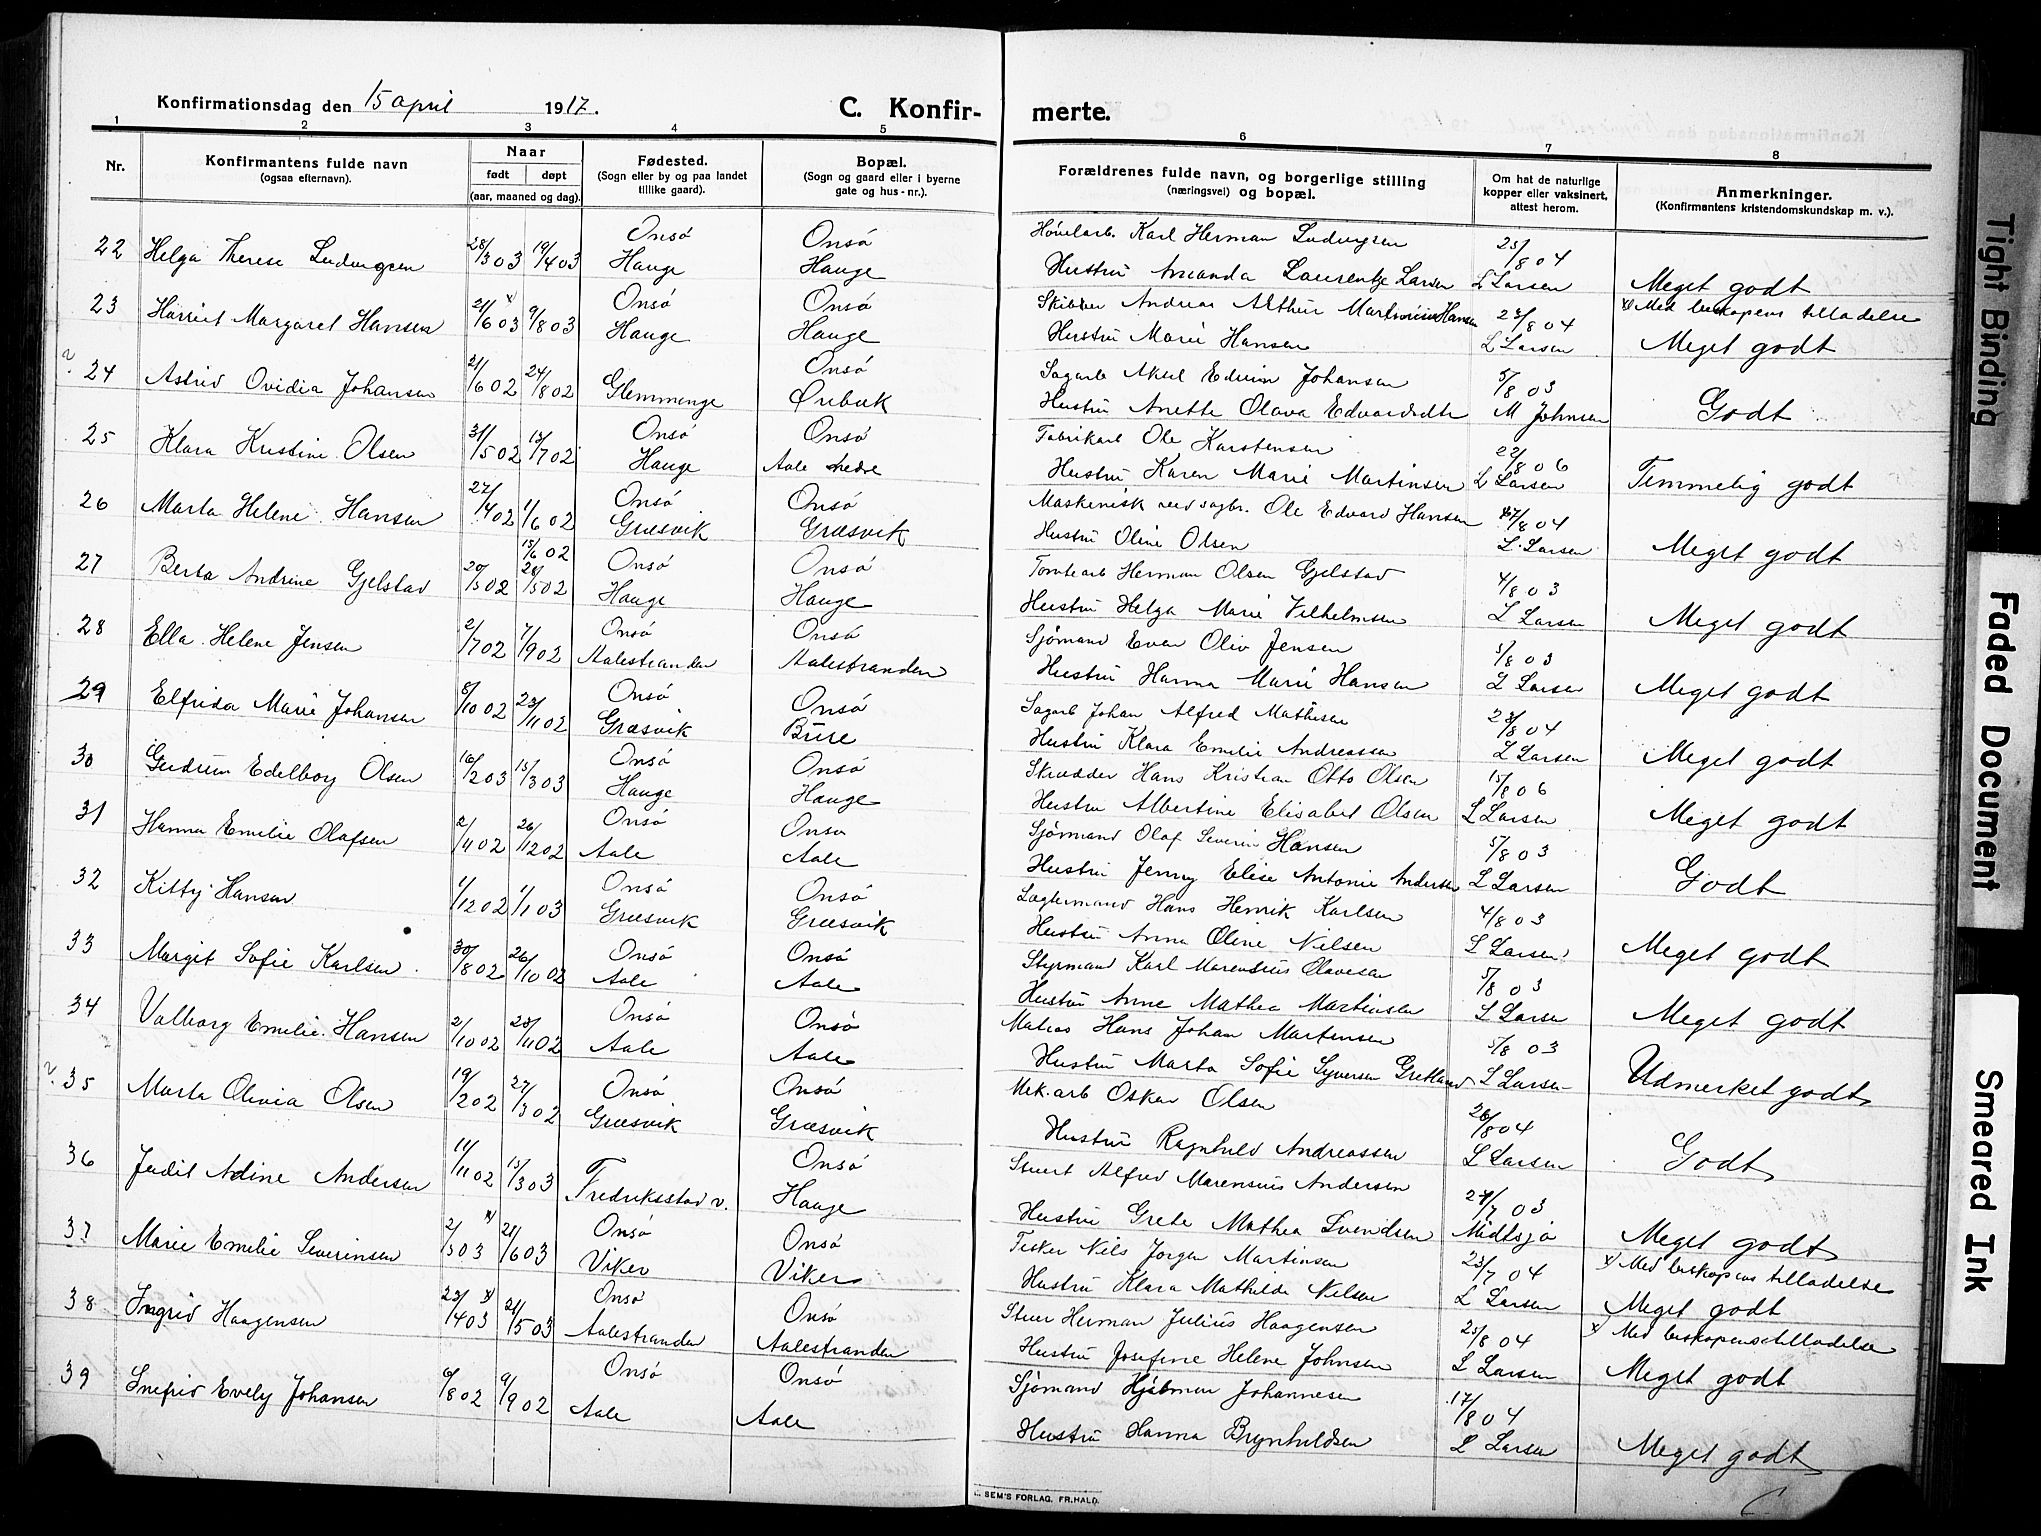 Konfirmationsdag den 15 april 1917. C. Konfir- merte.
1 2 3 4 5 6 7 8
Nr. Konfirmantens fulde navn (ogsaa efternavn). Naar født døpt (aar, maaned og dag). Fødested. (Sogn eller by og paa landet tillike gaard). Bopæl. (Sogn og gaard eller i byerne gate og hus-nr.). Forældrenes fulde navn, og borgerlige stilling (næringsvei) og bopæl. Om hat de naturlige kopper eller vaksinert, attest herom. Anmerkninger. (Konfirmantens kristendomskundskap m. v.).
22 Helga Therese Ludvigsen 28/3 03 19/4 03 Onsö Hauge Onsö Hauge Karl Herman Ludvigsen 25/8 04
Hustru Amanda Laurentze Larsen L Larsen Meget godt
23 Harriet Margaret Hansen 21/6 03 x) 9/8 03 Onsö Hauge Onsö Hauge Skibber Andreas Arthur Martinius Hansen 23/8 04 x) Med biskopens tilladelse
Hustru Marie Hansen L Larsen Meget godt
24 Astrid Ovidia Johansen 21/6 02 24/8 02 Glemminge Onsö Örebæk Sagarb Aksel Edvin Johansen 5/8 03
Hustru Anette Olava Edvardsdtr M Johnsen Godt
25 Klara Kristine Olsen 31/5 02 13/7 02 Onsö Hauge Onsö Aale nedre Fabrikarb Ole Karstensen 22/8 06
Hustru Karen Marie Martinsen L Larsen Temmelig godt
26 Marta Helene Hansen 27/4 02 1/6 02 Onsö Græsvik Onsö Græsvik Maskinist ved sagbr. Ole Edvard Hansen 17/8 04
Hustru Oline Olsen L. Larsen Meget godt
27 Berta Andrine Gjelstad 20/5 02 15/6 02 28/5 02 Onsö Hauge Onsö Hauge Tomtearb Herman Olsen Gjelstad 4/8 03
Hustru Helga Marie Vilhelmsen L Larsen Meget godt
28 Ella Helene Jensen 2/7 02 7/9 02 Onsö Aalestranden Onsö Aalestranden Sjömand Even Oliv Jensen 5/8 03
Hustru Hanna Marie Hansen L Larsen Meget godt
29 Elfrida Marie Johansen 8/10 02 23/11 02 Onsö Græsvik Onsö Büre Sagarb Johan Alfred Mathisen 23/8 04
Hustru Klara Emilie Andreassen L Larsen Meget godt
30 Gudrun Edelborg Olsen 16/2 03 15/3 03 Onsö Hauge Onsö Hauge Skrædder Hans Kristian Otto Olsen 15/8 06
Hustru Albertine Elisabet Olsen L Larsen Meget godt
31 Hanna Emilie Olafsen 2/11 02 26/12 02 Onsö Aale Onsö Aale Sjömand Olaf Severin Hansen 5/8 03
Hustru Jenny Elise Antonie Andersen L Larsen Godt
32 Kitty Hansen 1/12 02 1/1 03 Onsö Græsvik Onsö Græsvik Hans Henrik Karlsen 4/8 03
Hustru Anna Oline Nilsen L Larsen Meget godt
33 Margit Sofie Karlsen 30/8 02 26/10 02 Onsö Aale Onsö Aale Styrmand Karl Marensius Olavesen 5/8 03
Hustru Anne Mathea Martinsen L Larsen Meget godt
34 Valborg Emilie Hansen 2/10 02 23/11 02 Onsö Aale Onsö Aale Matros Hans Johan Martinsen 5/8 03
Hustru Marta Sofie Syversen Gretland L Larsen Udmerket godt
35 Marta Olivia Olsen 19/2 02 27/3 02 Onsö Græsvik Onsö Græsvik Mek. arb Oskar Olsen 26/8 04
Hustru Ragnhild Andreassen L Larsen Godt
36 Judit Adine Andersen 11/11 02 15/3 03 Fredriksstad v. Onsö Hauge Stuert Alfred Marensius Andersen 27/7 03
Hustru Grete Mathea Svendsen Midtsjø Meget godt
37 Marie Emilie Severinsen 2/5 03 x) 21/6 03 Onsö Viker Onsö Viker Fisker Nils Jörgen Martinsen 23/7 04 x) Med biskopens tilladelse
Hustru Klara Mathilde Nilsen L Larsen Meget godt
38 Ingrid Haagensen 23/4 03 x) 21/5 03 Onsö Aalestranden Onsö Aalestranden Stuer Herman Julius Haagensen 25/8 04 x) Med biskopens tilladelse
Hustru Josefine Helene Johnsen L Larsen Meget godt
39 Snefrid Evely Johansen 6/8 02 9/9 02 Onsö Aale Onsö Aale Sjömand Hjalmar Johannesen 17/8 04
Hustru Hanna Brynhildsen L Larsen Meget godt
SEM'S FORLAG, FR.HALD.
Tight Binding
Faded Document
Smeared Ink